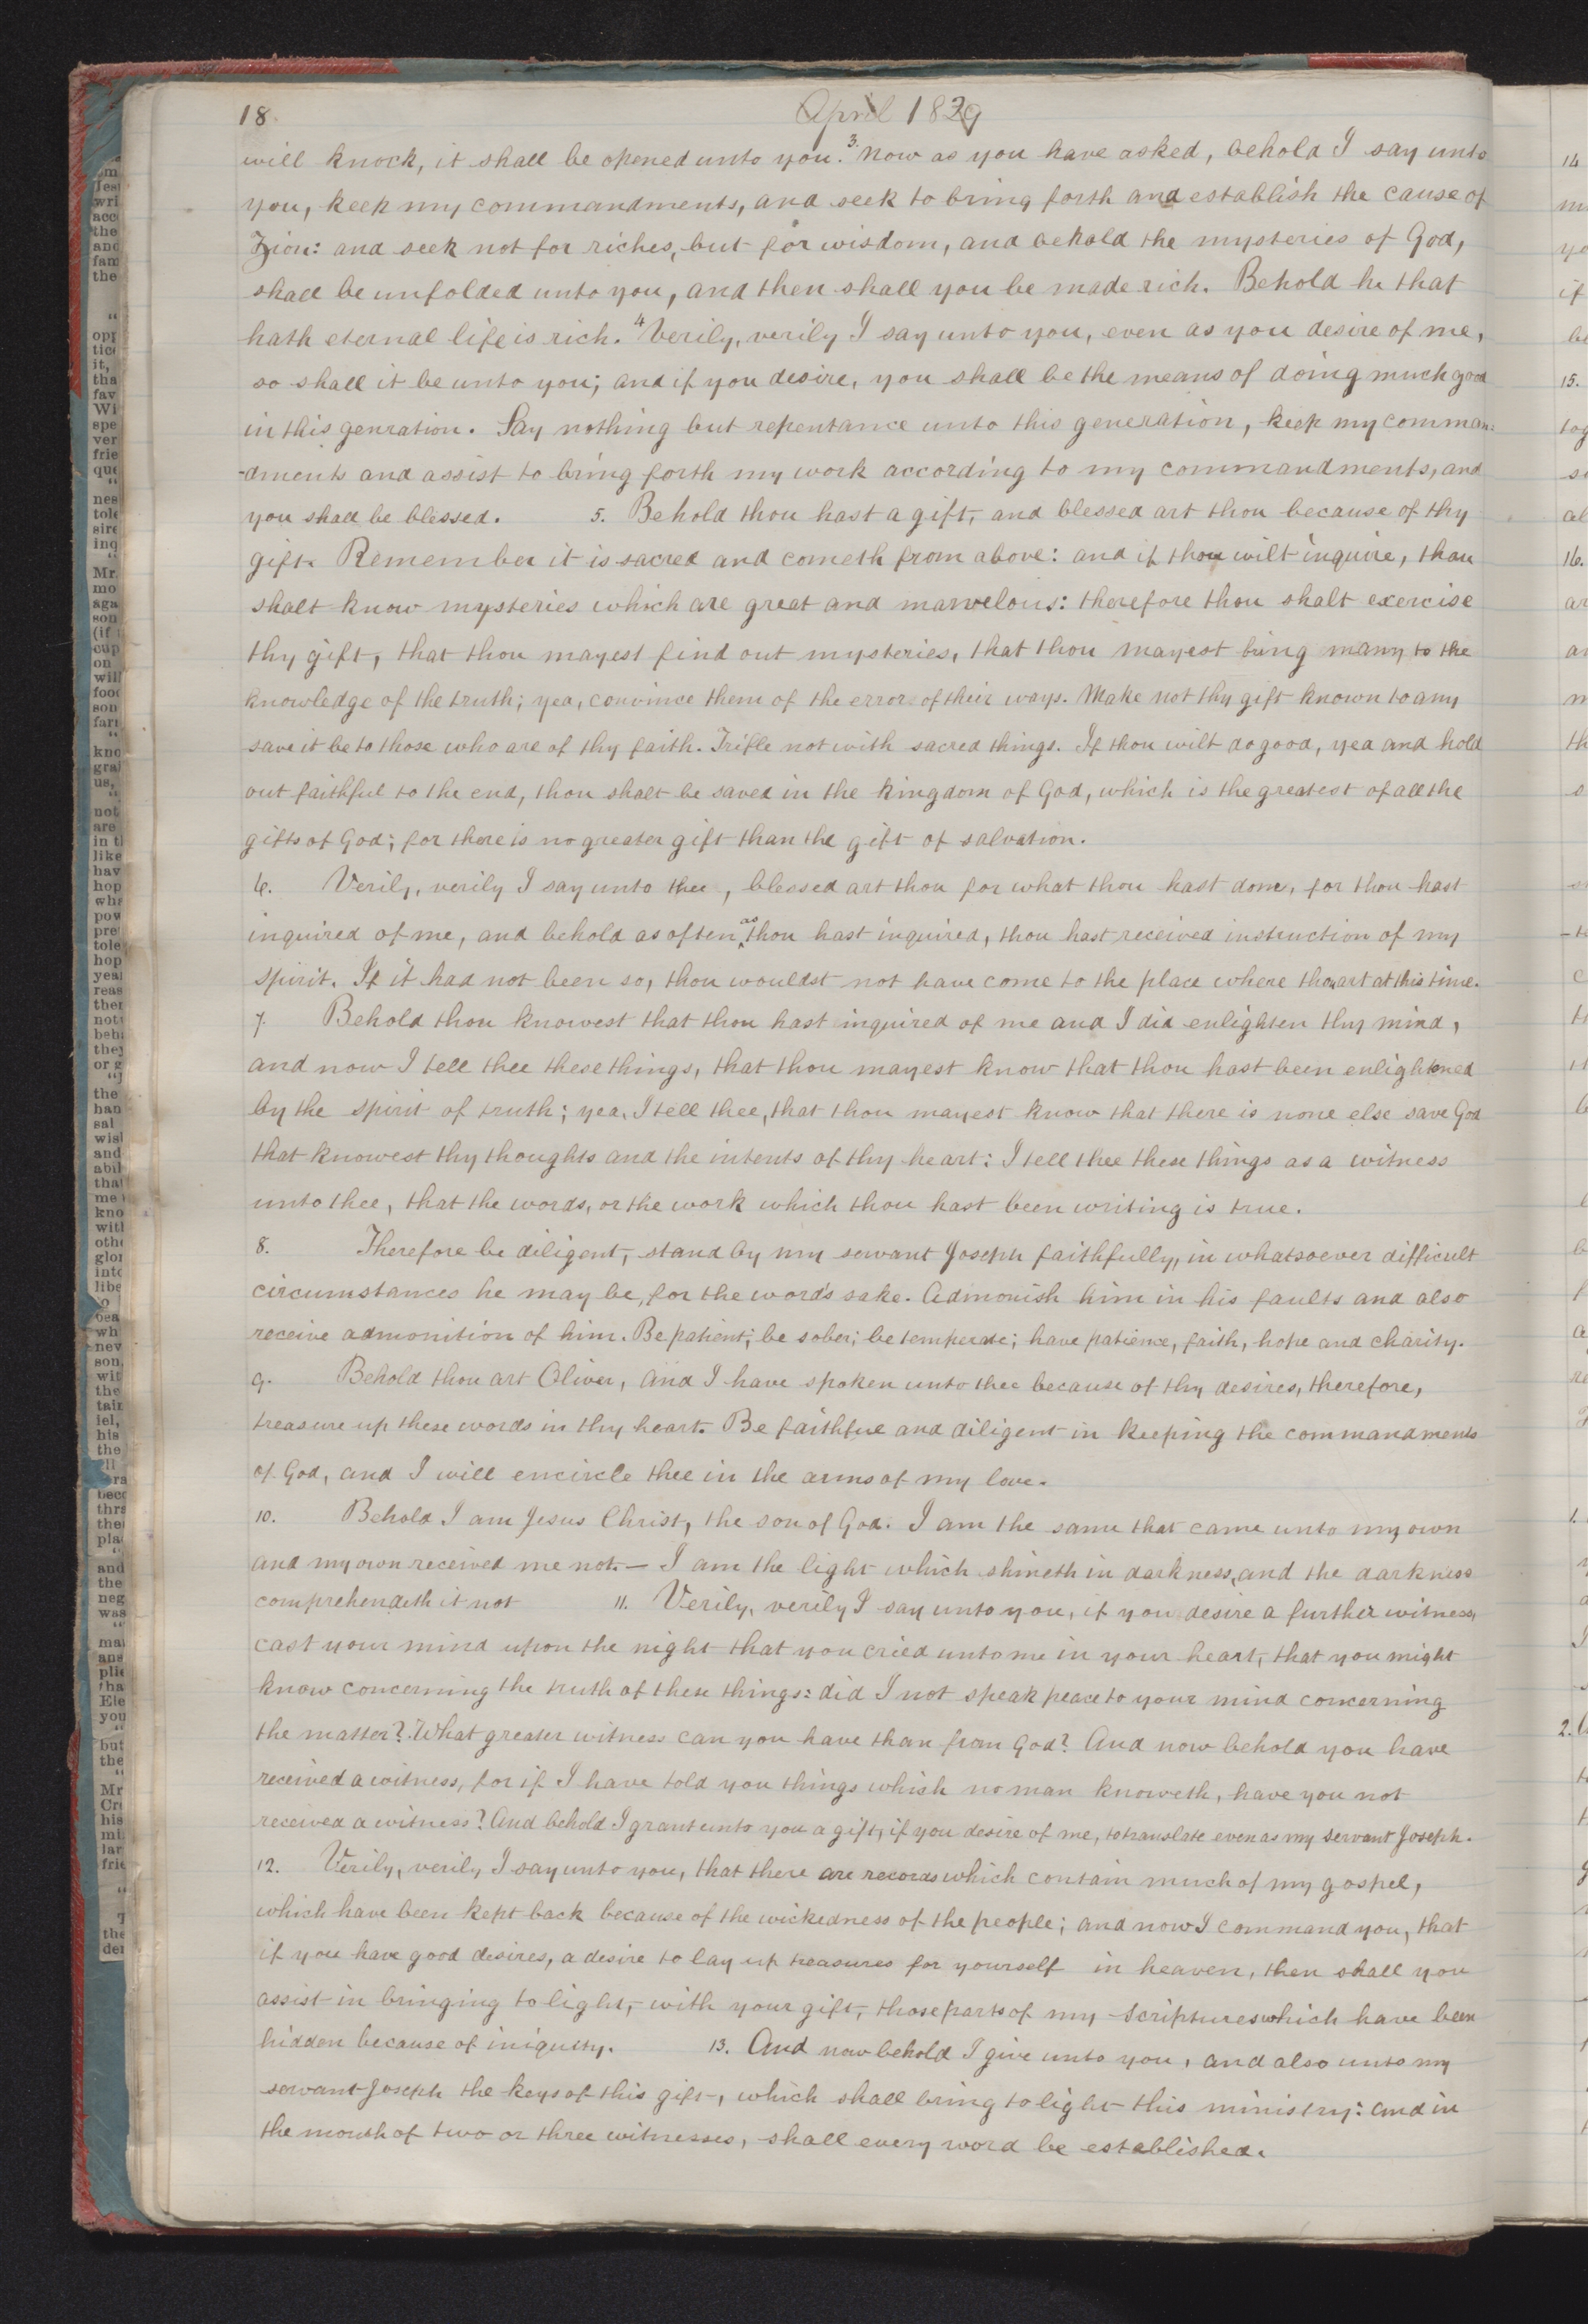 18.
April 1829
will knock, it shall be opened unto you. 3. Now as you have asked, behold I say unto
you, keep my commandments, and seek to bring forth and establish the cause of
Zion: and seek not for riches, but for wisdom, and behold the mysteries of God,
shall be unfolded unto you, and then shall you be made rich. Behold he that
hath eternal life is rich. 4 Verily, verily I say unto you, even as you desire of me,
so shall it be unto you; and if you desire, you shall be the means of doing much good
in this genration. Say nothing but repentance unto this generation, keep my comman-
-dments and assist to bring forth my work according to my commandments, and
you shall be blessed. 5. Behold thou hast a gift, and blessed art thou because of thy
gift. Remember it is sacred and cometh from above: and if thou wilt inquire, thou
shalt know mysteries which are great and marvelous: therefore thou shalt exercise
thy gift, that thou mayest find out mysteries, that thou mayest bring many to the
knowledge of the truth; yea, convince them of the error of their ways. Make not thy gift known to any
save it be to those who are of thy faith. Trifle not with sacred things. If thou wilt do good, yea and hold
out faithful to the end, thou shalt be saved in the kingdom of God, which is the greatest of all the
gifts of God; for there is no greater gift than the gift of salvation.
6. Verily, verily I say unto thee, blessed art thou for what thou hast done, for thou hast
inquired of me, and behold as often as thou hast inquired, thou hast received instruction of my
spirit. If it had not been so, thou wouldst not have come to the place where thou art at this time.
7. Behold thou knowest that thou hast inquired of me and I did enlighten thy mind,
and now I tell thee these things, that thou mayest know that thou hast been enlightened
by the spirit of truth; yea, I tell thee, that thou mayest know that there is none else save God
that knowest thy thoughts and the intents of thy heart: I tell thee these things as a witness
unto thee, that the words, or the work which thou hast been writing is true.
8. Therefore be diligent, stand by my servant Joseph faithfully, in whatsoever difficult
circumstances he may be, for the word's sake. Admonish him in his faults and also
receive admonition of him. Be patient; be sober; be temperate; have patience, faith, hope and charity.
9. Behold thou art Oliver, and I have spoken unto thee because of thy desires, therefore,
treasure up these words in thy heart. Be faithful and diligent in keeping the commandments
of God, and I will encircle thee in the arms of my love.
10. Behold I am Jesus Christ, the son of God. I am the same that came unto my own
and my own received me not. — I am the light which shineth in darkness, and the darkness
comprehendeth it not 11. Verily, verily I say unto you, if you desire a further witness,
cast your mind upon the night that you cried unto me in your heart, that you might
know concerning the truth of these things: did I not speak peace to your mind concerning
the matter? What greater witness can you have than from God? And now behold you have
received a witness, for if I have told you things which no man knoweth, have you not
received a witness? And behold I grant unto you a gift, if you desire of me, to translate even as my servant Joseph.
12. Verily, verily I say unto you, that there are records which contain much of my gospel,
which have been kept back because of the wickedness of the people; and now I command you, that
if you have good desires, a desire to lay up treasures for yourself in heaven, then shall you
assist in bringing to light, with your gift, those parts of my scriptures which have been
hidden because of iniquity. 13. And now behold I give unto you, and also unto my
servant Joseph the keys of this gift, which shall bring to light this ministry: and in
the mouth of two or three witnesses, shall every word be established.